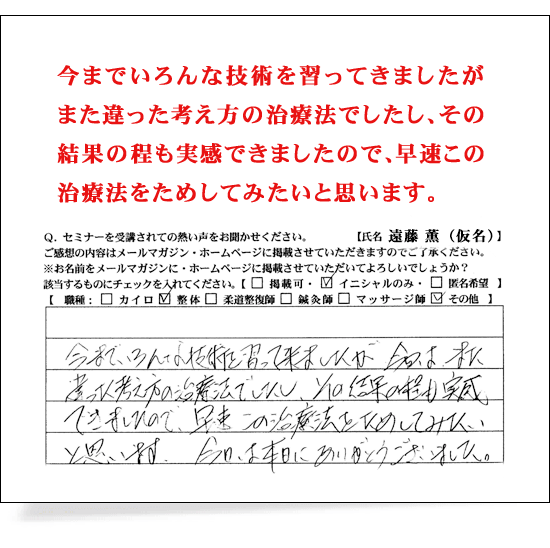 今までいろんな技術を習ってきましたが
また違った考え方の治療法でしたし、その
結果の程も実感できましたので、早速この
治療法をためしてみたいと思います。
Q. セミナーを受講されての熱い声をお聞かせください。 【氏名 遠藤 薫（仮名）】
ご感想の内容はメールマガジン・ホームページに掲載させていただきますのでご了承ください。
※お名前をメールマガジンに・ホームページに掲載させていただいてよろしいでしょうか？
該当するものにチェックを入れてください。【 □ 掲載可・ ☑ イニシャルのみ・ □ 匿名希望 】
【 職種： □ カイロ ☑ 整体 □ 柔道整復師 □ 鍼灸師 □ マッサージ師 ☑ その他 】
今まで、いろんな技術を習って来ましたが 今回は また
違った考え方の治療法でしたし その結果の程も実感
できましたので、早速 この治療法をためしてみたい
と思います。 今日は本日にありがとうございました。